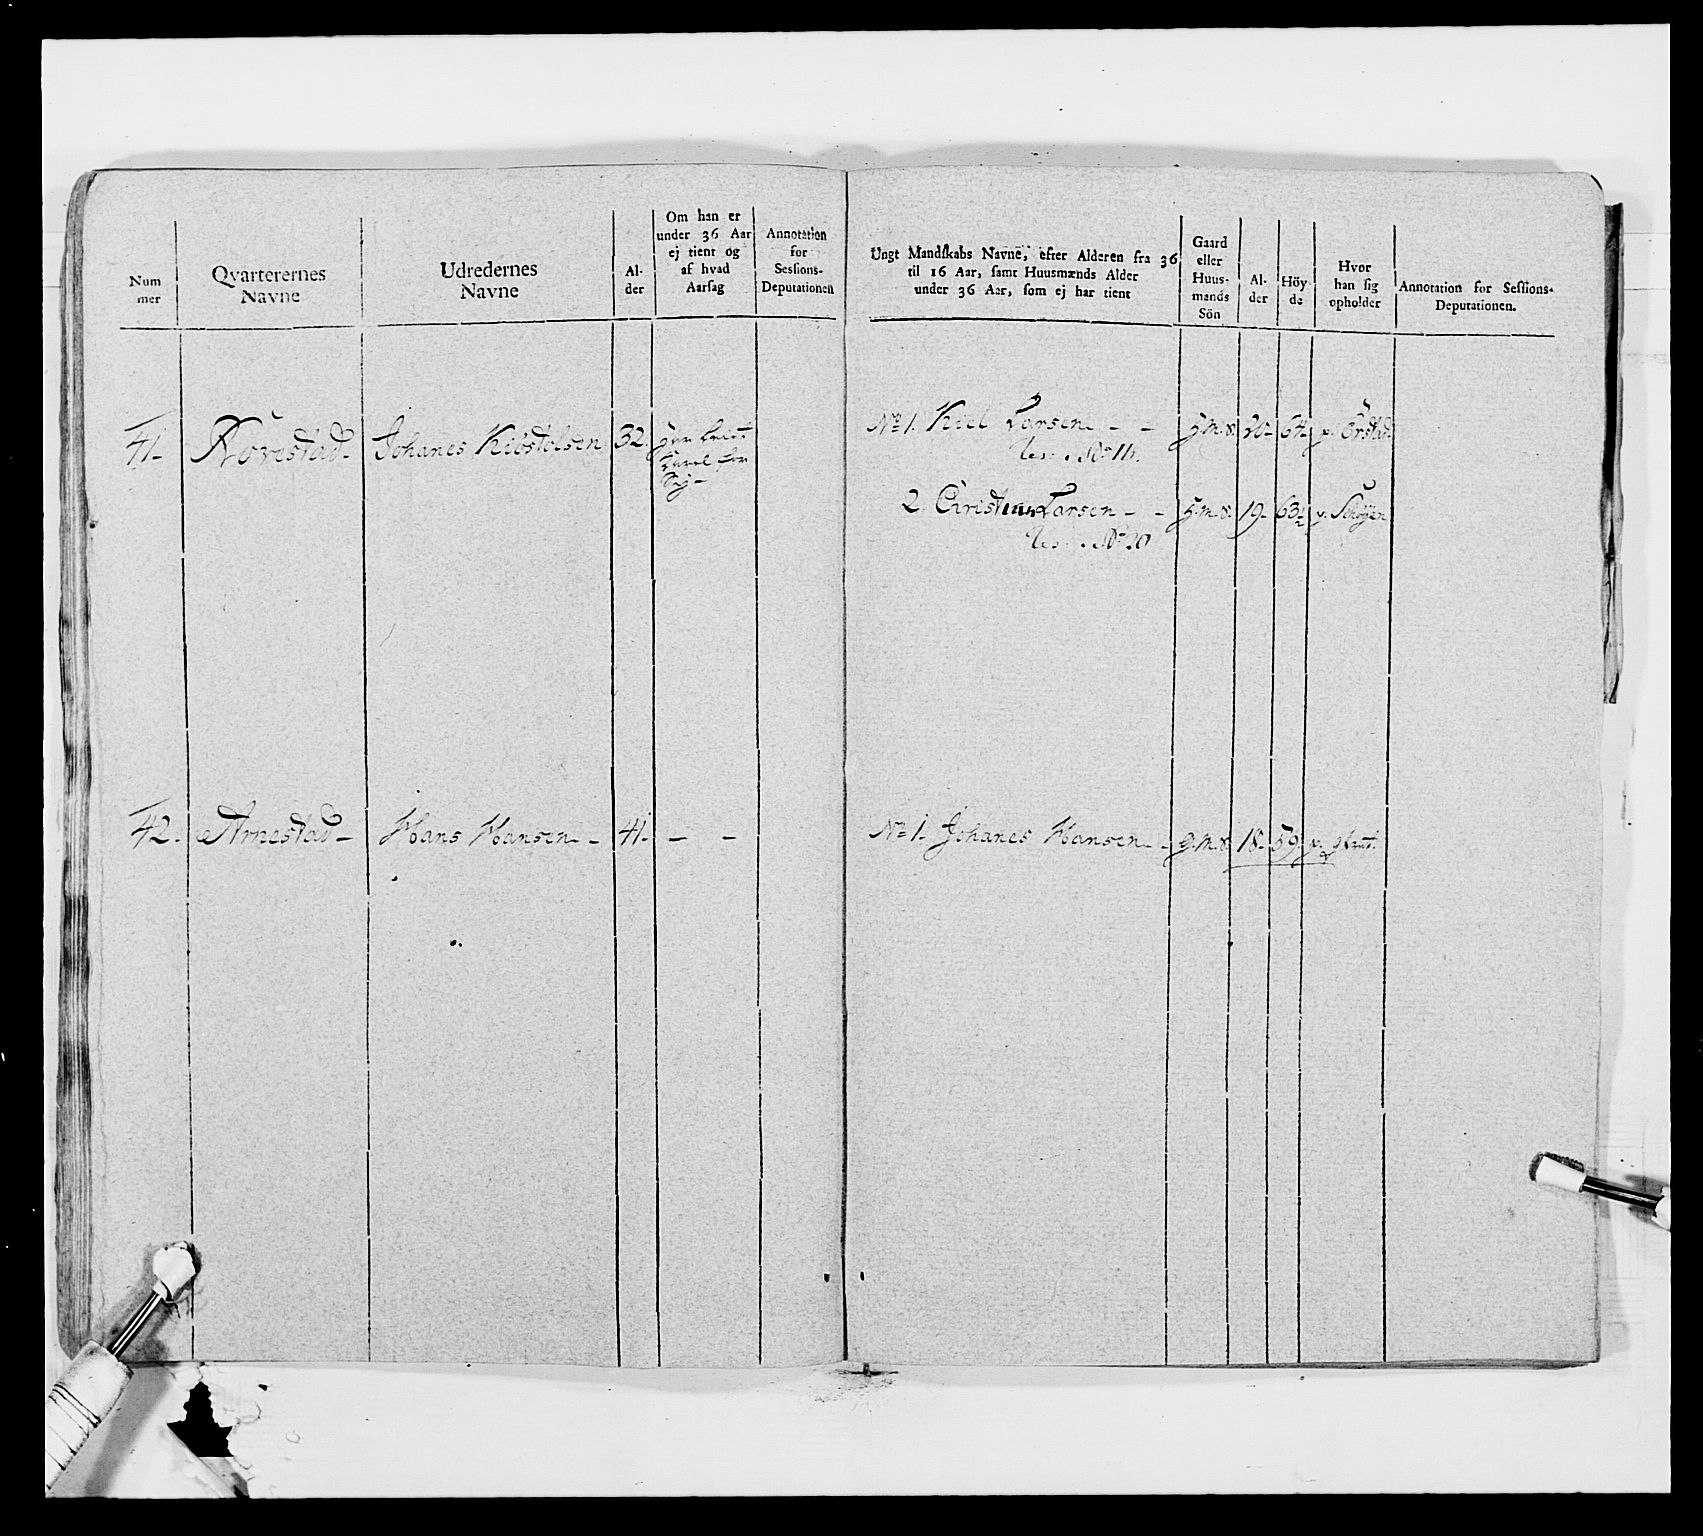 Num
mer
Qvarterernes
Navne
Udredernes
Navne
Al-
der
Om han er
under 36 Aar
ej tient og
af hvad
Aarsag
Annotation
for
Sessions-
Deputationen
Ungt Mandskabs Navne, efter Alderen fra 36
til 16 Aar, samt Huusmænds Alder
under 36 Aar, som ej har tient
Gaard
eller
Huus-
mands
Sön
Al-
der
Höy
de
Hvor
han sig
opholder
Annotation for Sessions-
Deputationen.
41- Rörestad- Johanes Kibstelsen 32.
for
No 1. Kiel Larsen - - 20- 64-
No 11.
2 Christian Larsen - - 19- 63½
No 20
42- Arnestad- Hans Hansen- 41- - - No 1. Johanes Hansen- g.m.s. 18- 59-